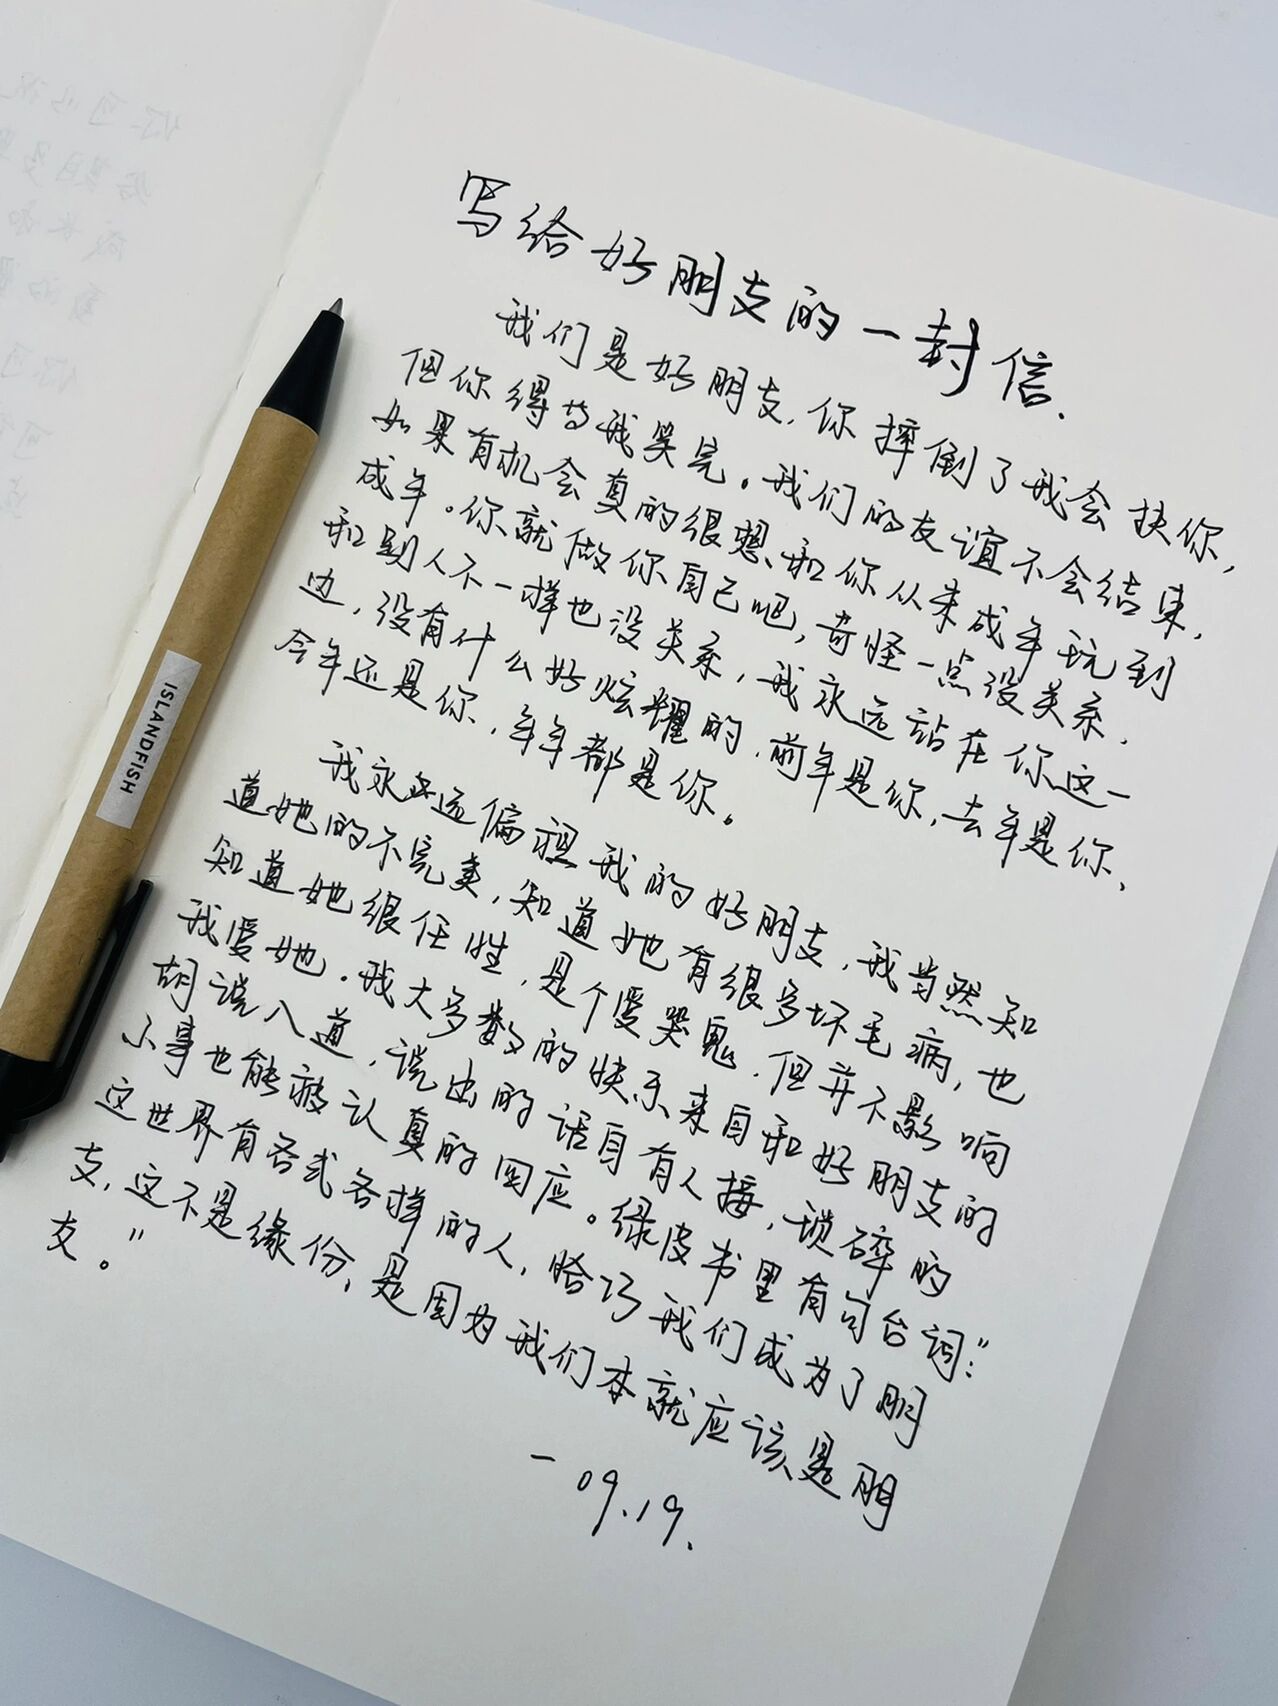 写给好朋友的一封信.
我们是好朋友,你摔倒了我会扶你,
但你得等我笑完。我们的友谊不会结束,
如果有机会真的很想和你从未成年玩到
成年。你就做你自己吧,奇怪一点没关系,
和别人不一样也没关系,我永远站在你这一
边,没有什么好炫耀的,前年是你,去年是你,
今年还是你,年年都是你。
我永远偏袒我的好朋友,我当然知
道她的不完美,知道她有很多坏毛病,也
知道她很任性,是个爱哭鬼.但并不影响
我爱她.我大多数的快乐来自和好朋友的
胡说八道,说出的话自有人接,琐碎的
小事也能被认真的回应。绿皮书里有句台词:"
这世界有各式各样的人,恰巧我们成为了朋
友,这不是缘份,是因为我们本就应该是朋
友。"
一 09.19.
ISLANDFISH